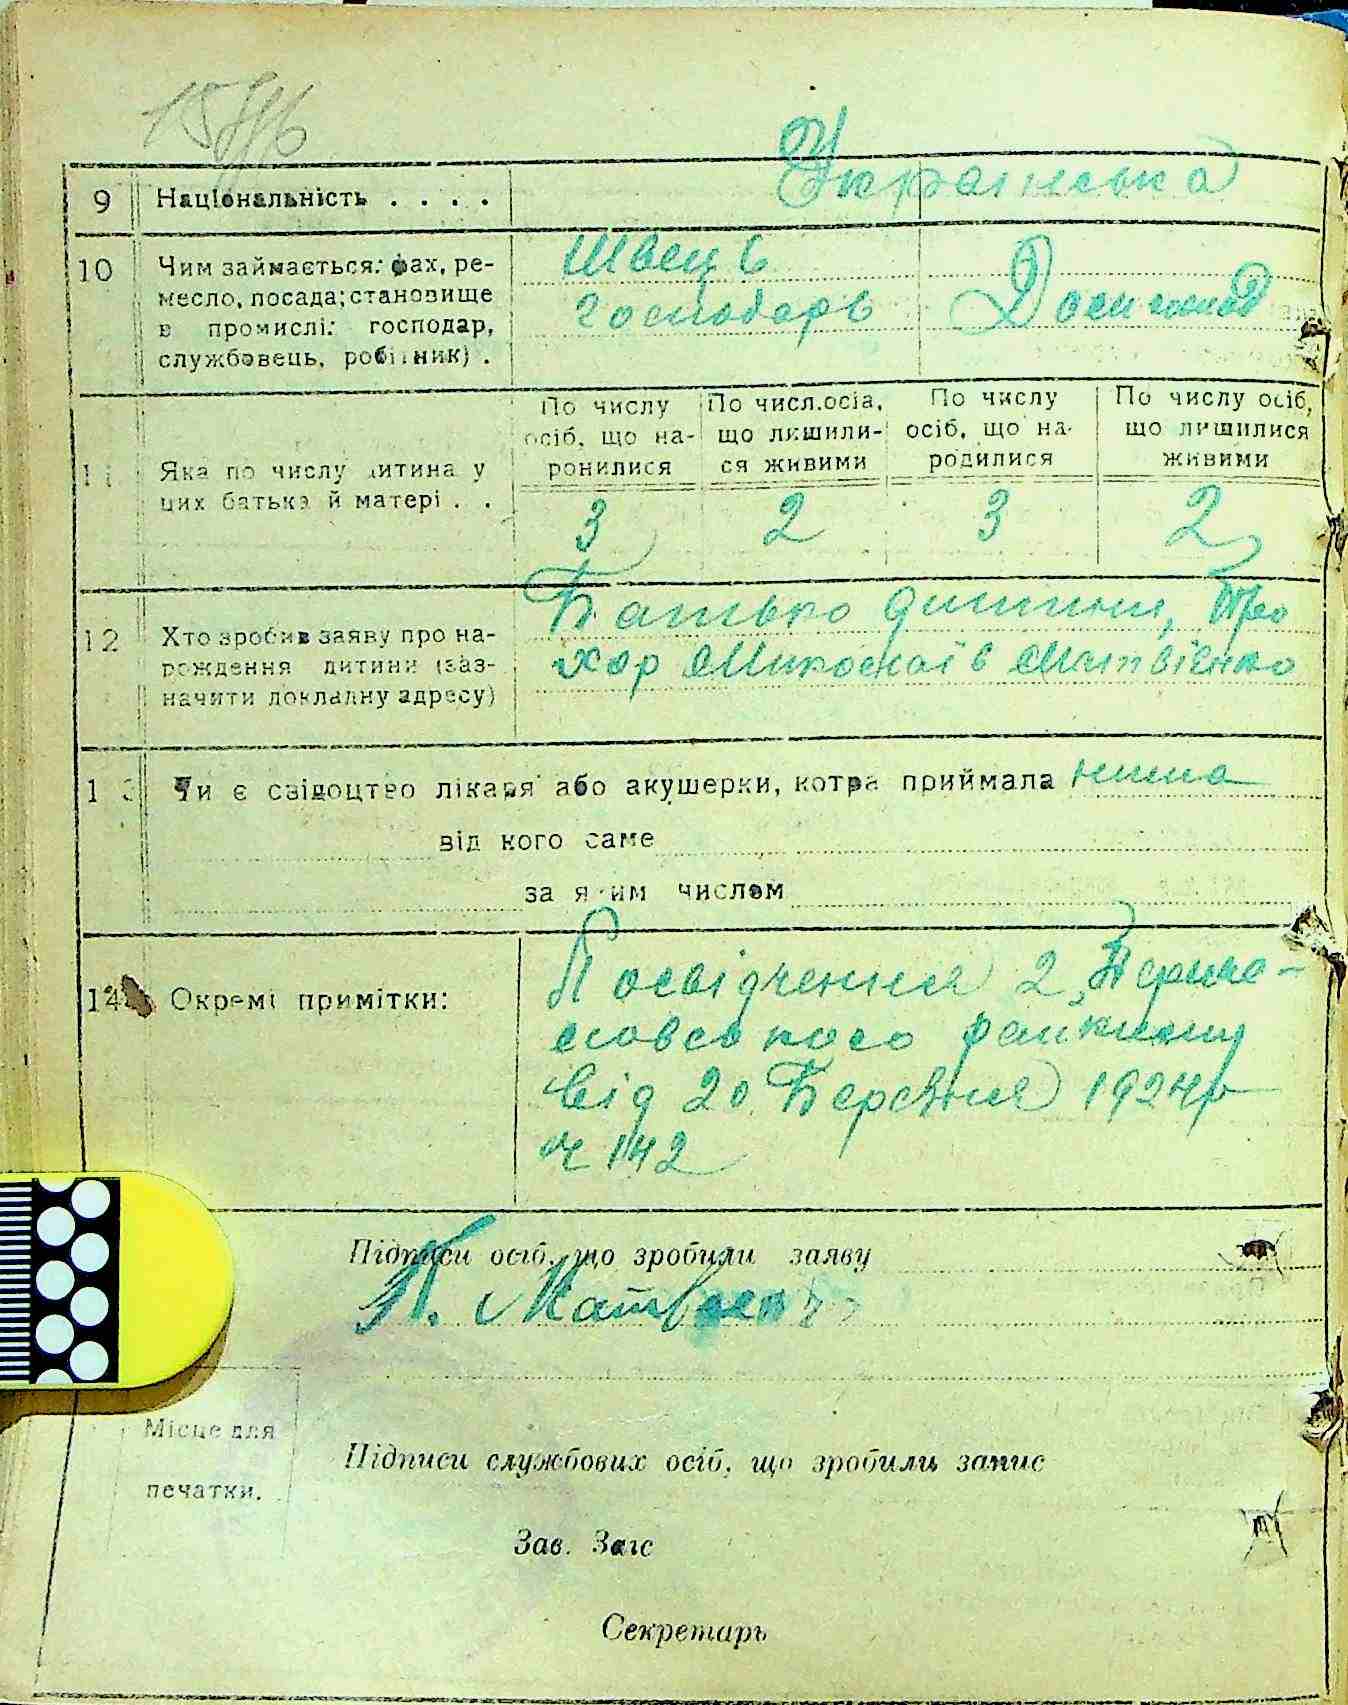 9 Національність . . . . Українська
10 Чим займається: фах, ре-
месло, посада; становище
в промислі: господар,
службовець, робітник) .
Швець
господарь
Дом господ
11 Яка по числу дитина у
цих батька й матері . .
По числу
осіб, що на-
ронилися
По числ.осіа,
що лишили-
ся живими
По числу
осіб, що на-
родилися
По числу осіб,
що лишилися
живими
3 2 3 2
12 Хто зробив заяву про на-
рождення дитини (заз-
начити докладну адресу)
Батько дитини, Про
хор Миколаїв Матвієнко
13 Чи є свідоцтво лікаря або акушерки, котра приймала нима
від кого саме
за яким числом
14 Окремі примітки:
Посвідчення 2
від 20 Березня 1924р
ч 142
Підписи осіб, що зробили заяву
П. Матвіенко
Місце для
печатки.
Підписи службових осіб, що зробили запис
Зав. Загс
Секретарь